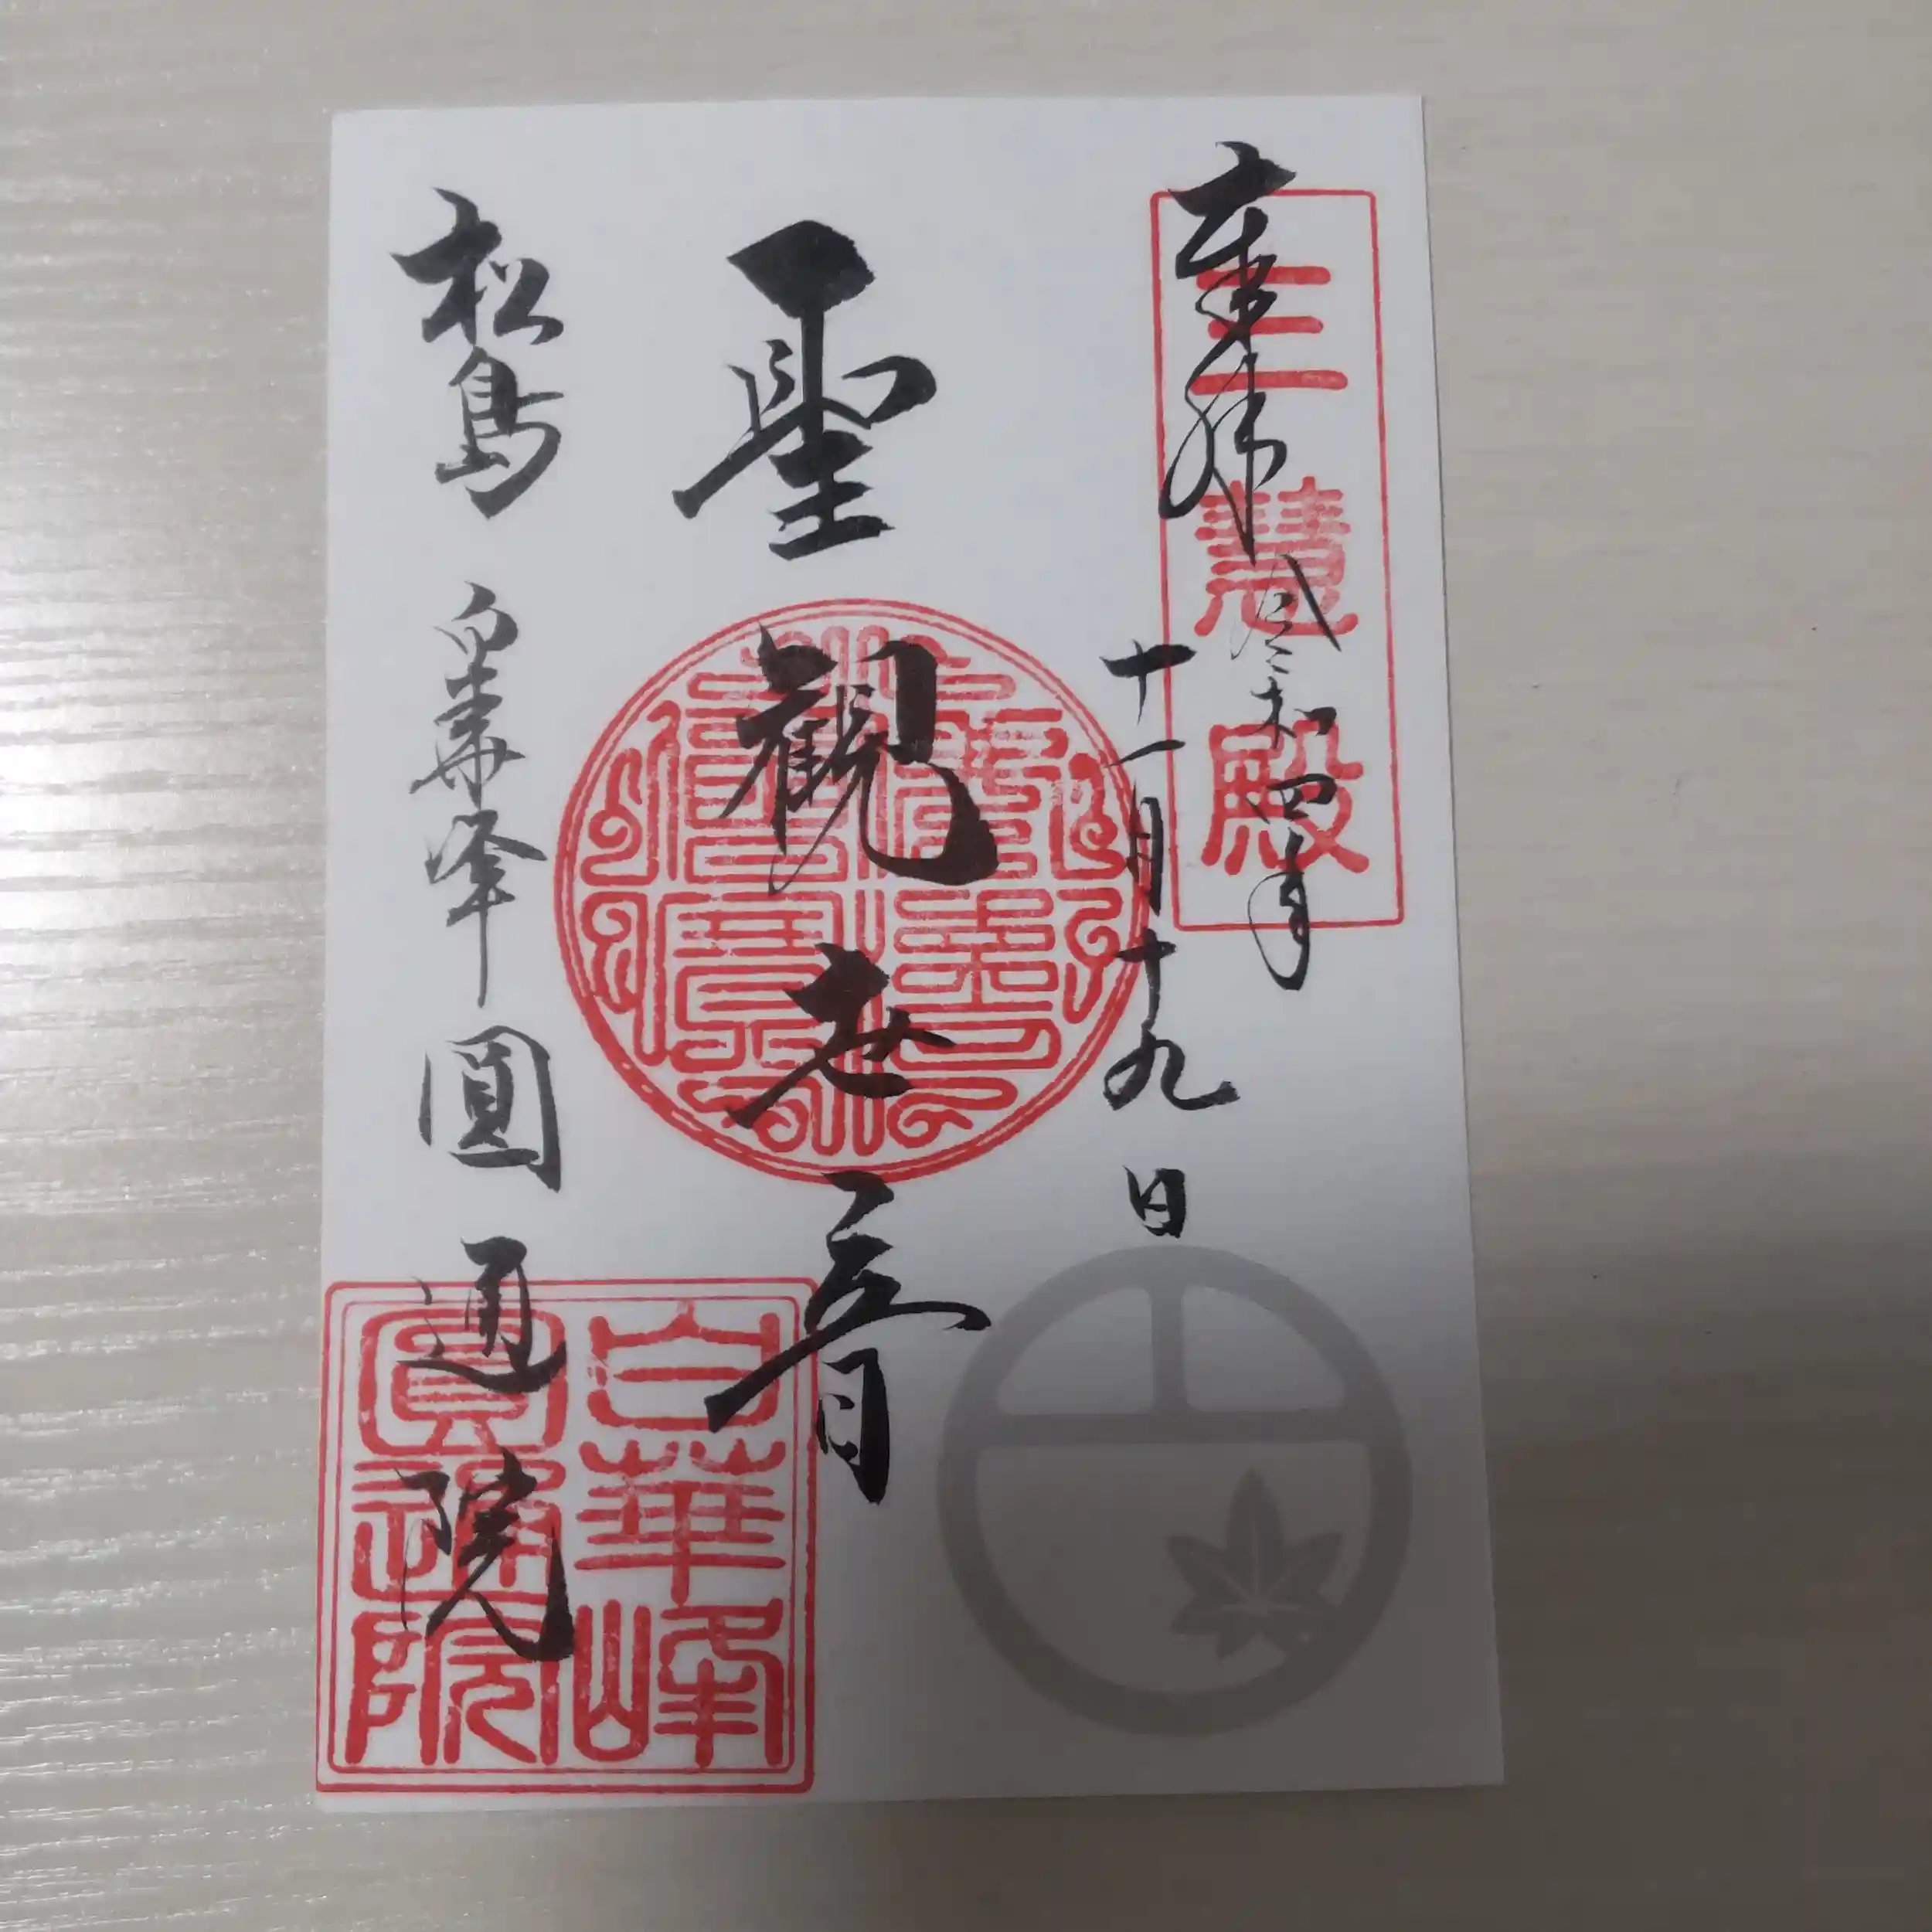 奉拝
三慧殿
令和四年
十一月十九日
聖観世音
松島 白華峰 圓通院
白華峰
圓通院